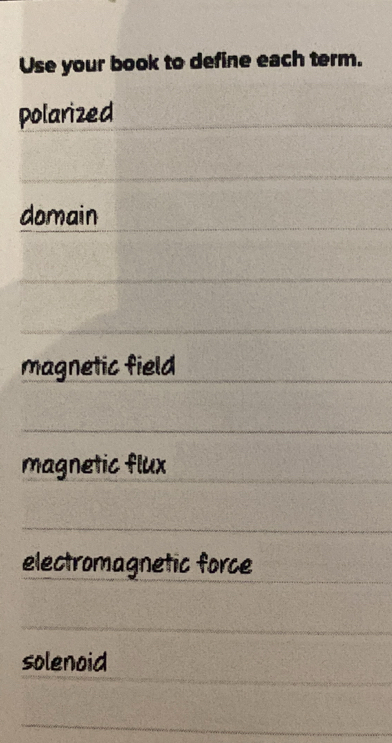 Use your book to define each term.
polarized
domain
magnetic field
magnetic flux
electromagnetic force
solenoid